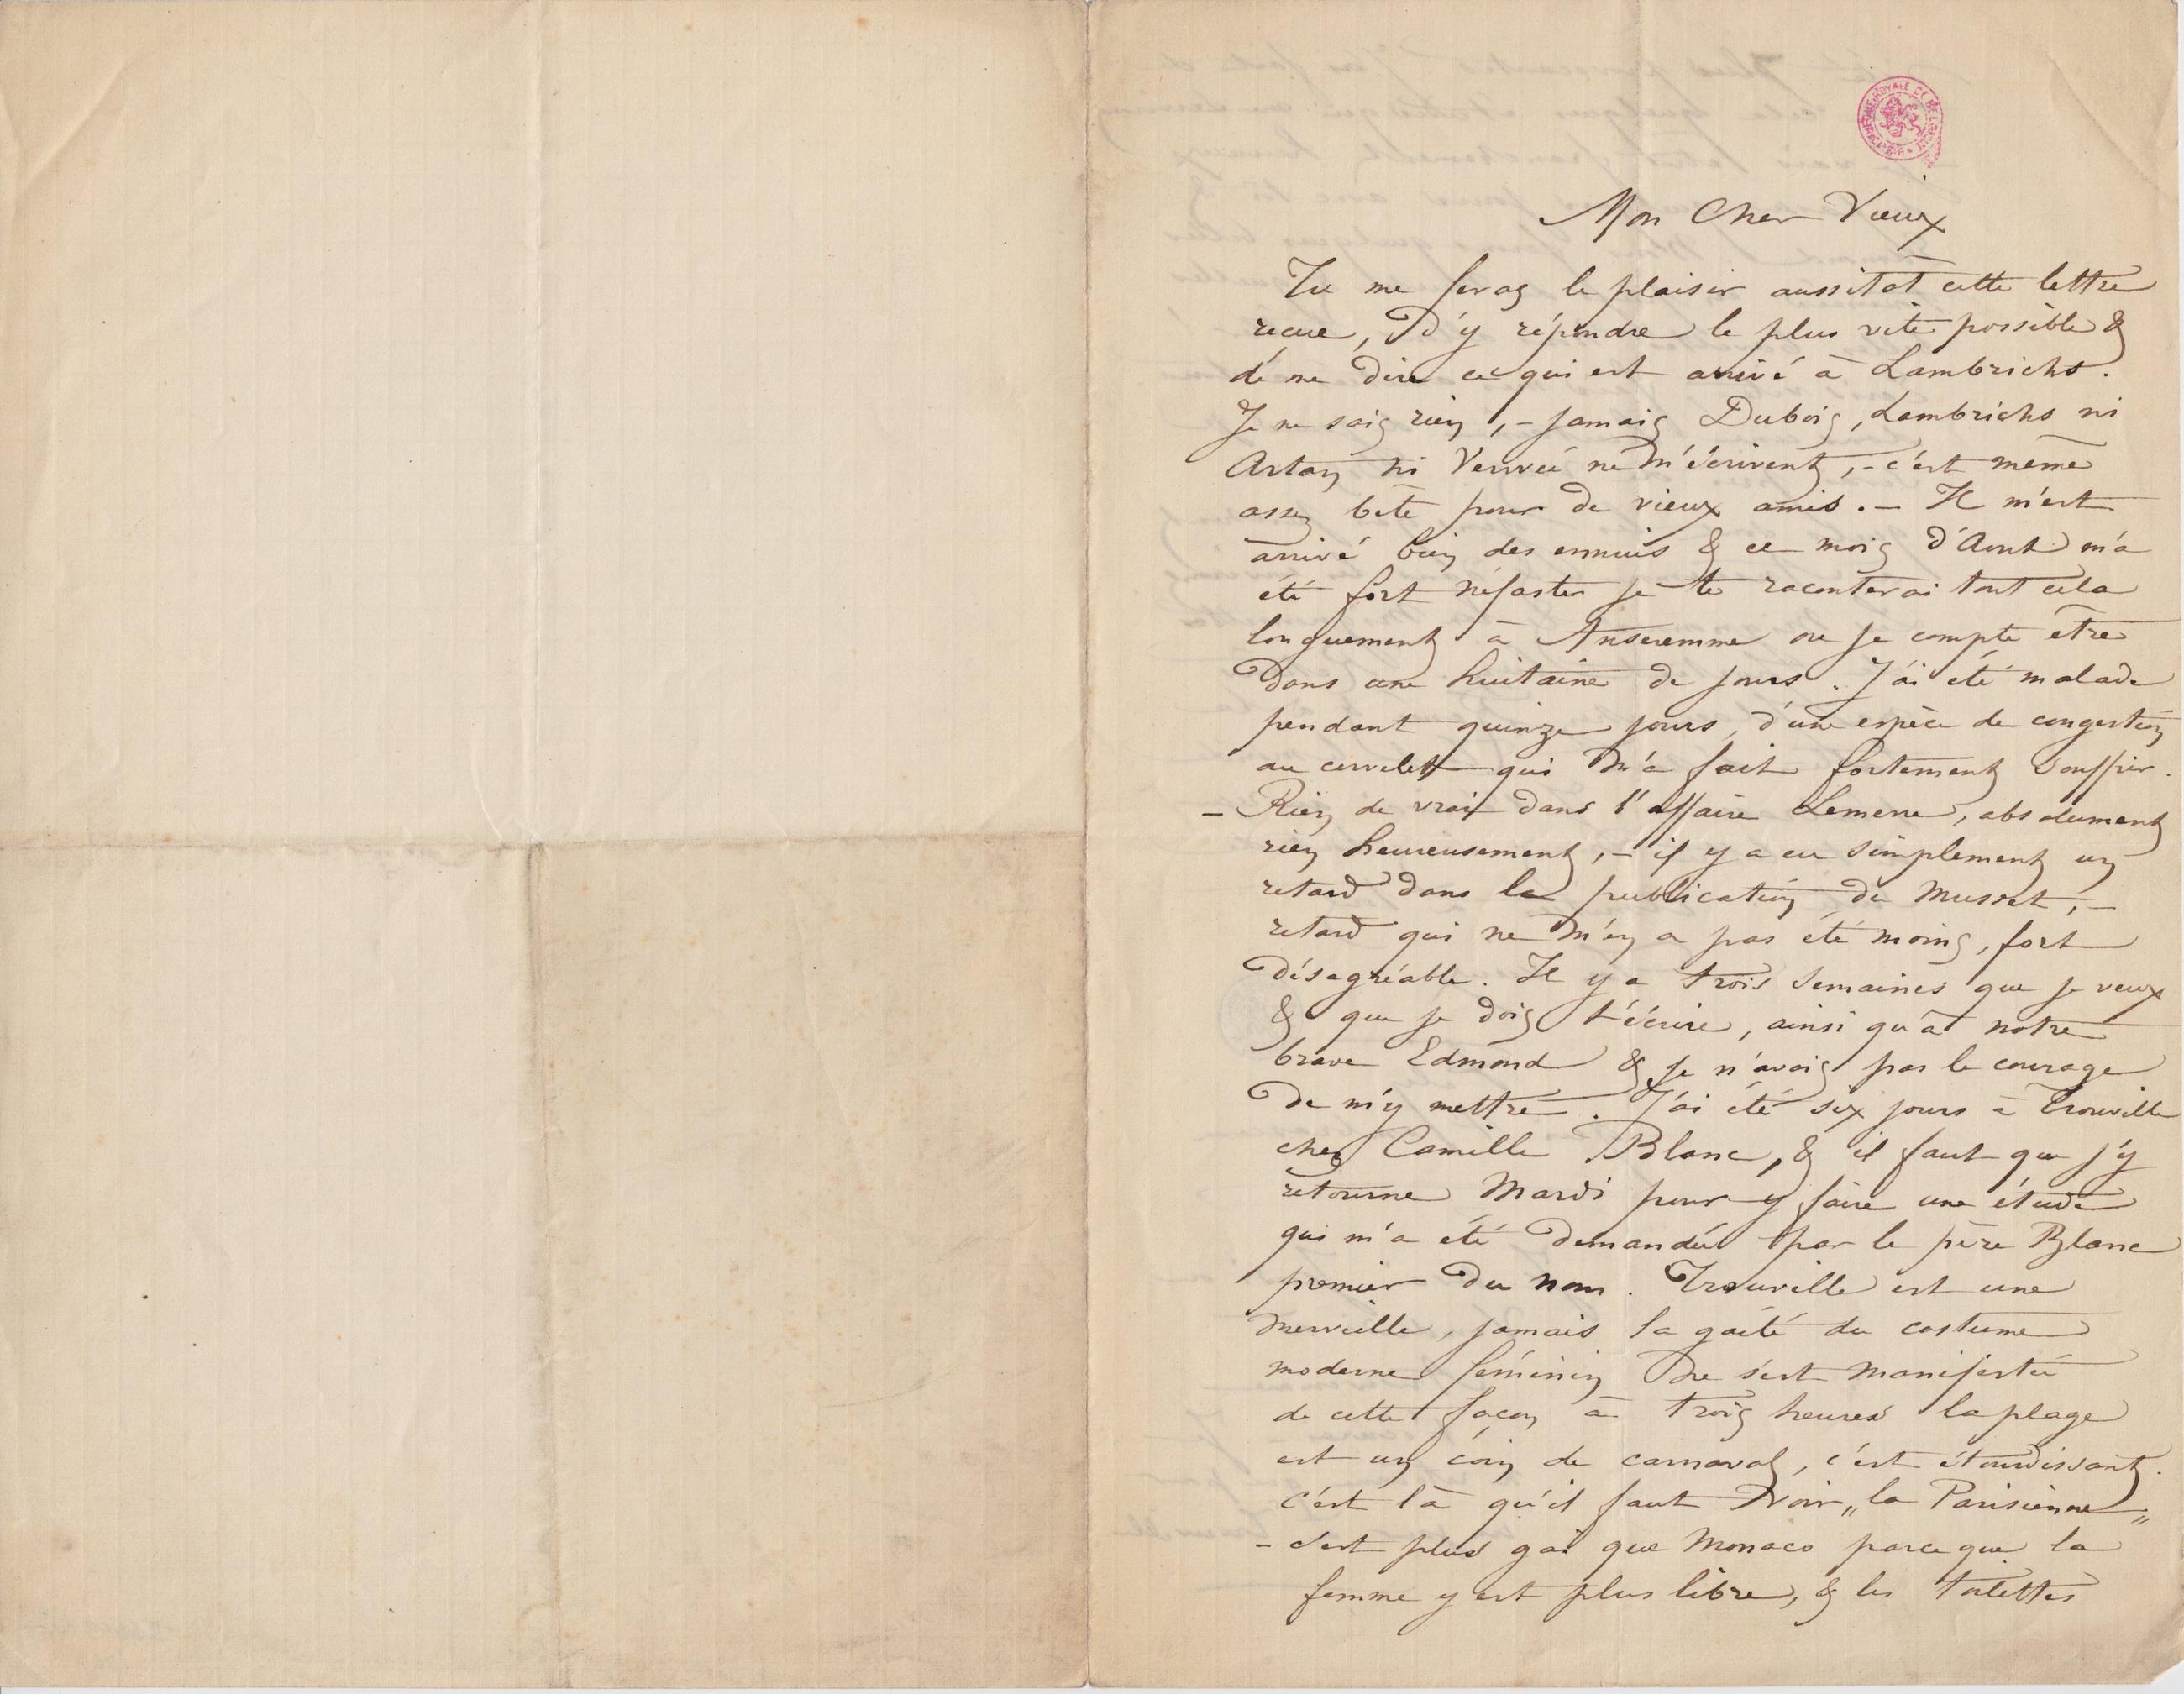 BIBLIOTHEQUE ROYALE DE BELGIQUE
Mon Cher Vieux
Tu me feras le plaisir aussitôt cette lettre
reçue, d'y répondre le plus vite possible &
de me dire ce qui est arrivé à Lambrichs.
Je ne sais rien, – jamais Dubois, Lambrichs ni
Artan ni Verwée ne m'écrivent, – c'est même
assez bête pour de vieux amis. – Il m'est
arrivé bien des ennuis & ce mois d'Aout m'a
été fort néfaste je te raconterai tout cela
longuement à Anseremme ou je compte être
dans une huitaine de jours. J'ai été malade
pendant quinze jours, d'une espèce de congestion
au cervelet qui m'a fait fortement souffrir.
– Rien de vrai dans l'affaire Lemerre, absolument
rien heureusement, – il y a eu simplement un
retard dans la publication de Musset, –
retard qui ne m'en a pas été moins, fort
désagréable. Il y a trois semaines que je veux
& que je dois t'écrire, ainsi qu'à notre
brave Edmond & je n'avais pas le courage
de m'y mettre. J'ai été six jours à Trouville
chez Camille Blanc, & il faut que j'y
retourne Mardi pour y faire une étude
qui m'a été demandée par le père Blanc
premier du nom. Trouville est une
merveille, jamais la gaité du costume
moderne féminin ne s'est manifestée
de cette façon à trois heures la plage
est un coin de carnaval, c'est étourdissant.
c'est là qu'il faut voir „la Parisienne„
– c'est plus gai que Monaco parce que la
femme y est plus libre, & les toilettes